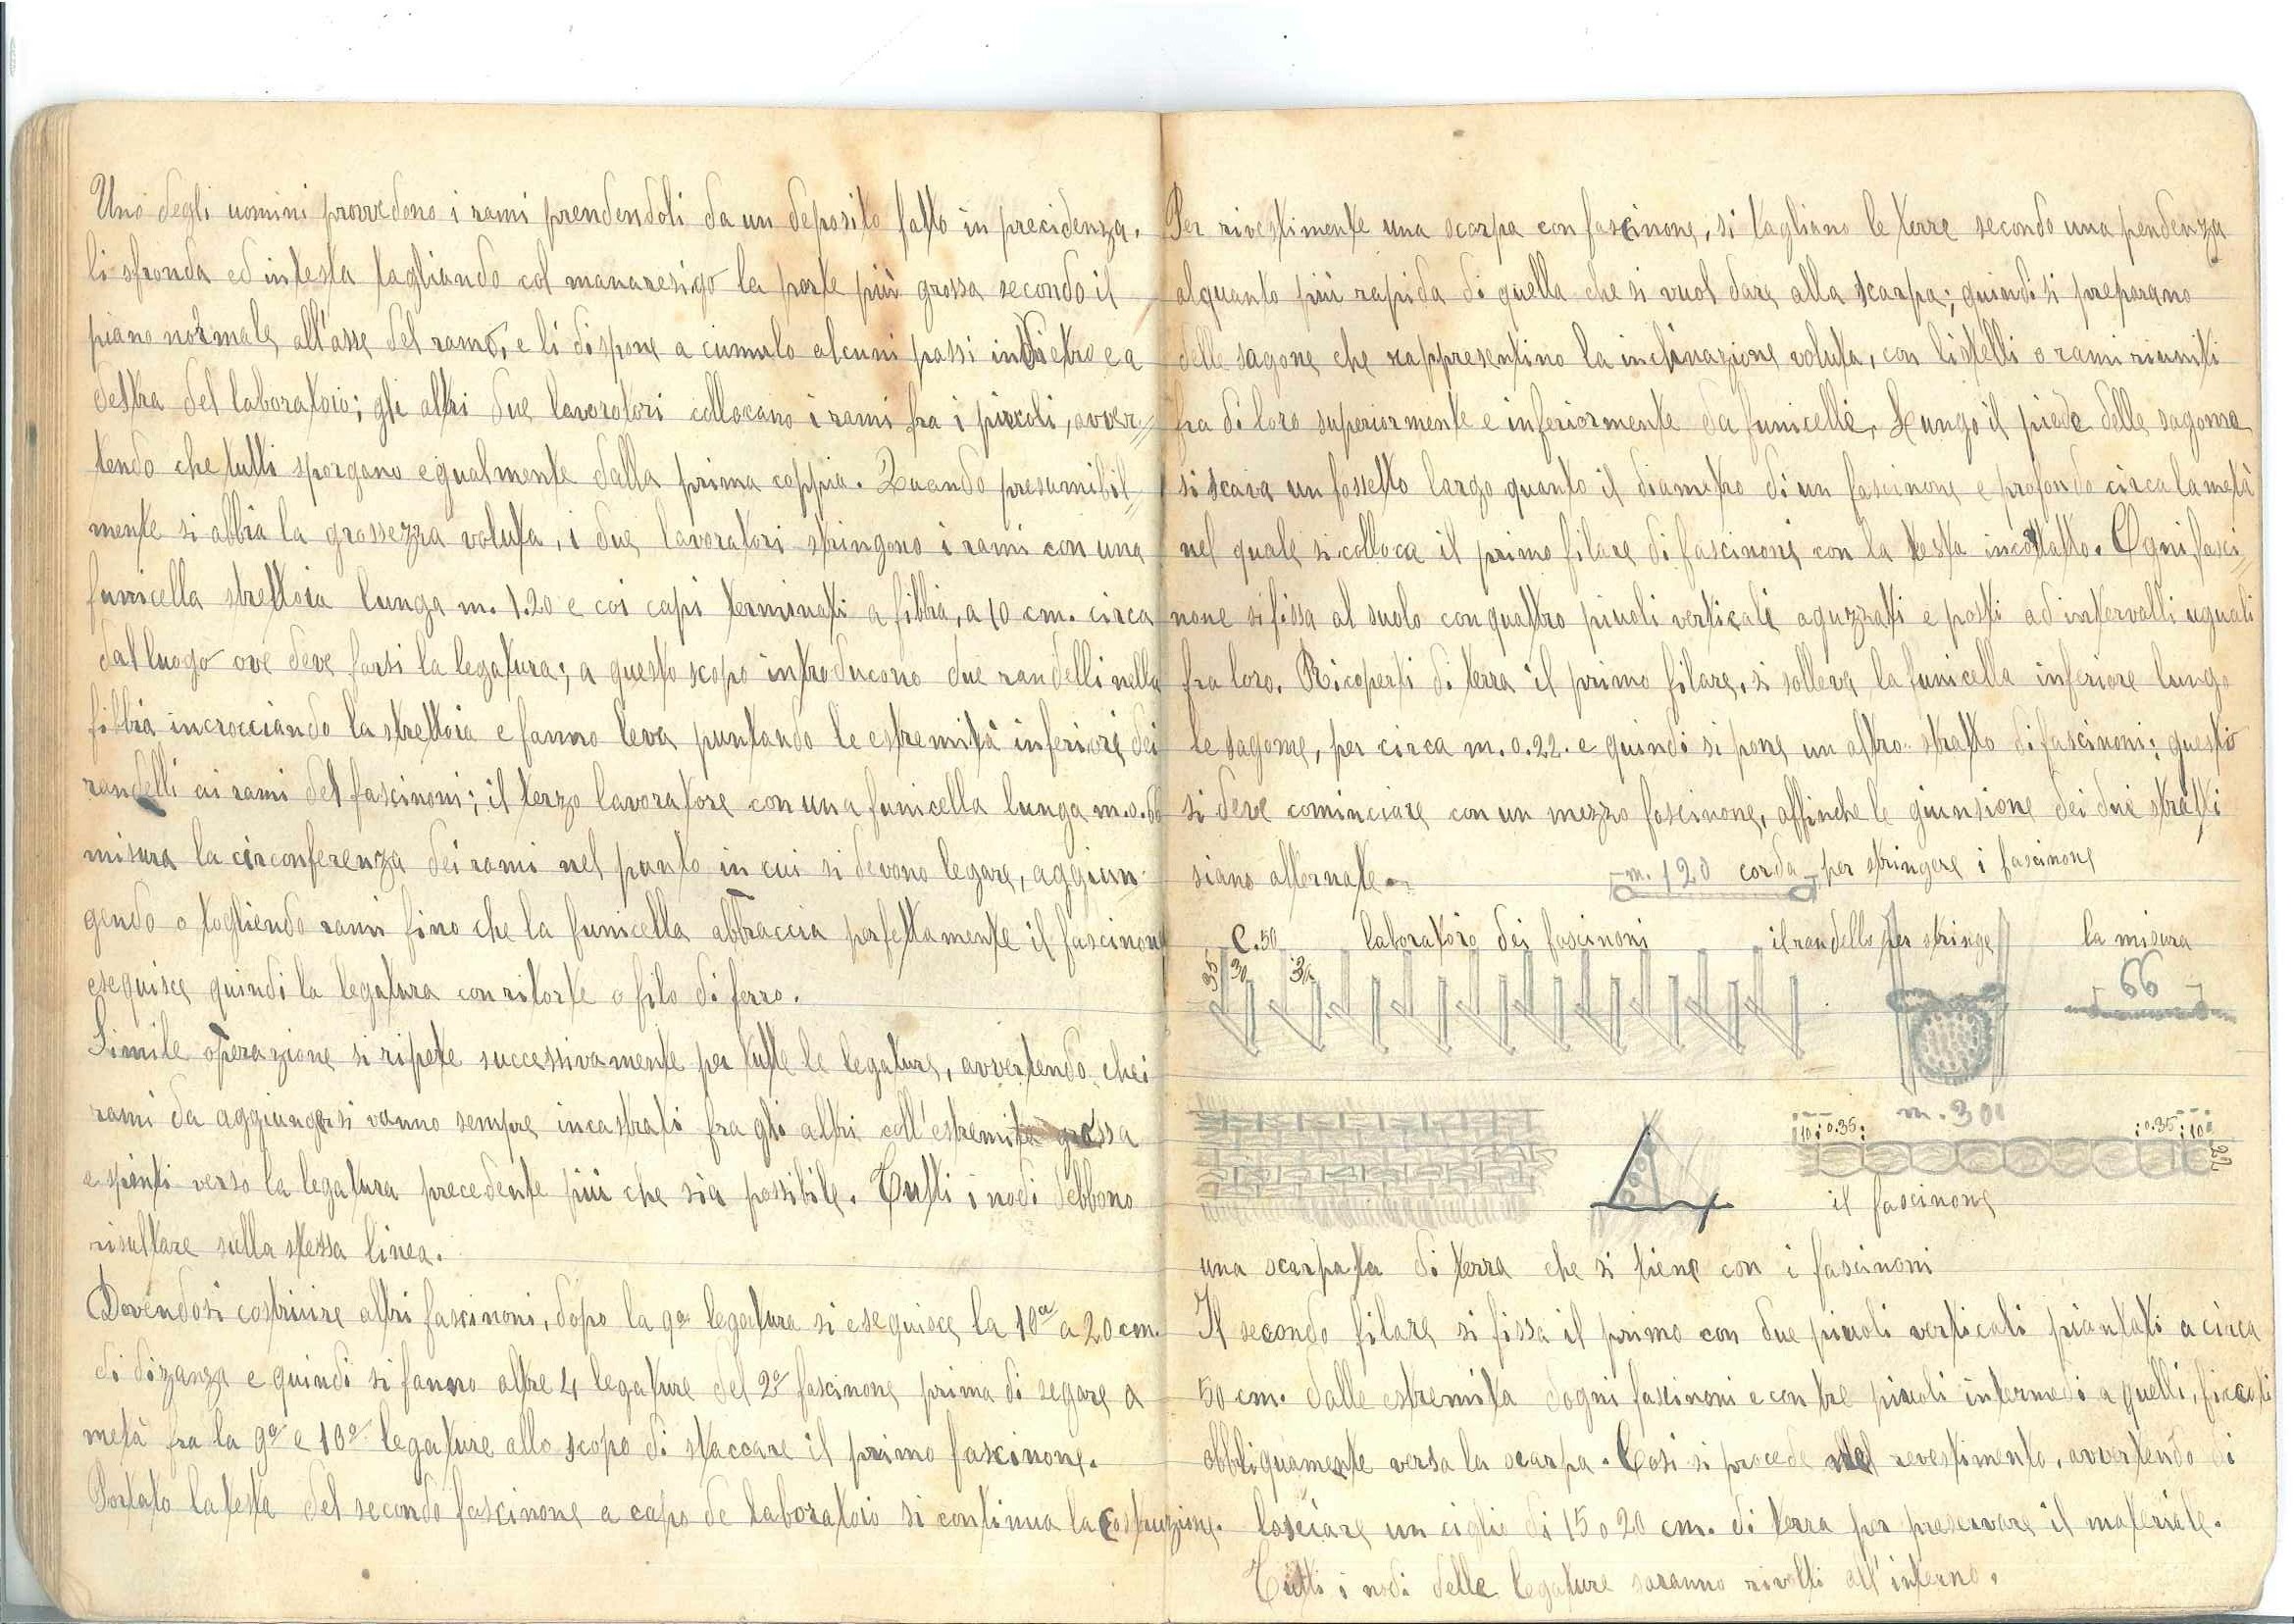 Uno degli uomini provvedono i rami prendendoli da un deposito fatto in precidenza,
li sfronda ed intesta tagliando col manaresigo la parte più grossa secondo il
piano normale all'asse del ramo, e li dispone a cumulo alcuni passi indietro e a
destra del laboratoio; gli altri due lavoratori collocano i rami fra i piccoli, avver=
tendo che tutti sporgano egualmente dalla prima coppia. Quando presumibil=
mente si abbia la grossezza voluta, i due lavoratori stringono i rami con una
funicella strettoia lunga m. 1.20 e coi capi terminati a fibbia, a 10 cm. circa
dal luogo ove deve farsi la legatura; a questo scopo introducono due randelli nella
fibbia incrocciando la strettoia e fanno leva puntando le estremità inferiori dei
randelli ai rami del fascinoni; il terzo lavoratore con una funicella lunga m.0.66
misura la circonferenza dei rami nel punto in cui si devono legare, aggiun-
gendo o togliendo rami fino che la funicella abbraccia perfettamente il fascinone
eseguisce quindi la legatura con ritorte o filo di ferro.
Simile operazione si ripete successivamente per tutte le legature, avvertendo che i
rami da aggiungersi vanno sempre incastrati fra gli altri coll'estremità grossa
e spinti verso la legatura precedente più che sia possibile. Tutti i nodi debbono
risultare sulla stessa linea.
Dovendosi costruire altri fascinoni, dopo la 9a legatura si eseguisce la 10a a 20 cm.
di dizanza e quindi si fanno altre 4 legature del 2o fascinone prima di segare a
metà fra la 9a e 10a legature allo scopo di staccare il primo fascinone.
Portato la testa del secondo fascinone a capo de laboratoio si continua la costruzione.
Per rivestimente una scarpa con fascinone, si tagliano le terre secondo una pendenza
alquanto più rapida di quella che si vuol dare alla scarpa; quindi si preparano
delle sagone che rappresentino la inclinazione voluta, con listelli o rami riuniti
fra di loro superiormente e inferiormente da funicelle. Lungo il piede delle sagome
si scava un fossetto largo quanto il diametro di un fascinone e profondo circa la metà
nel quale si colloca il primo filare di fascinoni con la testa incontatto. Ogni fasci=
none si fissa al suolo con quattro piuoli verticali aguzzati e posti ad intervalli uguali
fra loro. Ricoperti di terra il primo filare, si solleva la funicella inferiore lungo
le sagome, per circa m. 0.22. e quindi si pone un altro strato di fascinoni; questo
si deve cominciare con un mezzo fascinone, affinche le giunsione dei due strati
siano alternate.
m. 120 corda per stringere i fascinone
C.50 laboratoro dei fascinoni il randello per stringe la misura
35 30 66
m. 30
10 0.35 0.35 10 22
il fascinone
una scarpata di terra che si tiene con i fascinoni
Il secondo filare si fissa il primo con due piuoli verticali piantati a circa
50 cm. dalle estremita dogni fascinoni e con tre piuoli intermedi a quelli, ficcati
obbliquamente versa la scarpa. Cosi si procede nel revestimento, avvertendo di
lasciare un ciglio di 15 o 20 cm. di terra per preservare il materiale.
Tutti i nodi delle legature saranno rivolti all'interno.